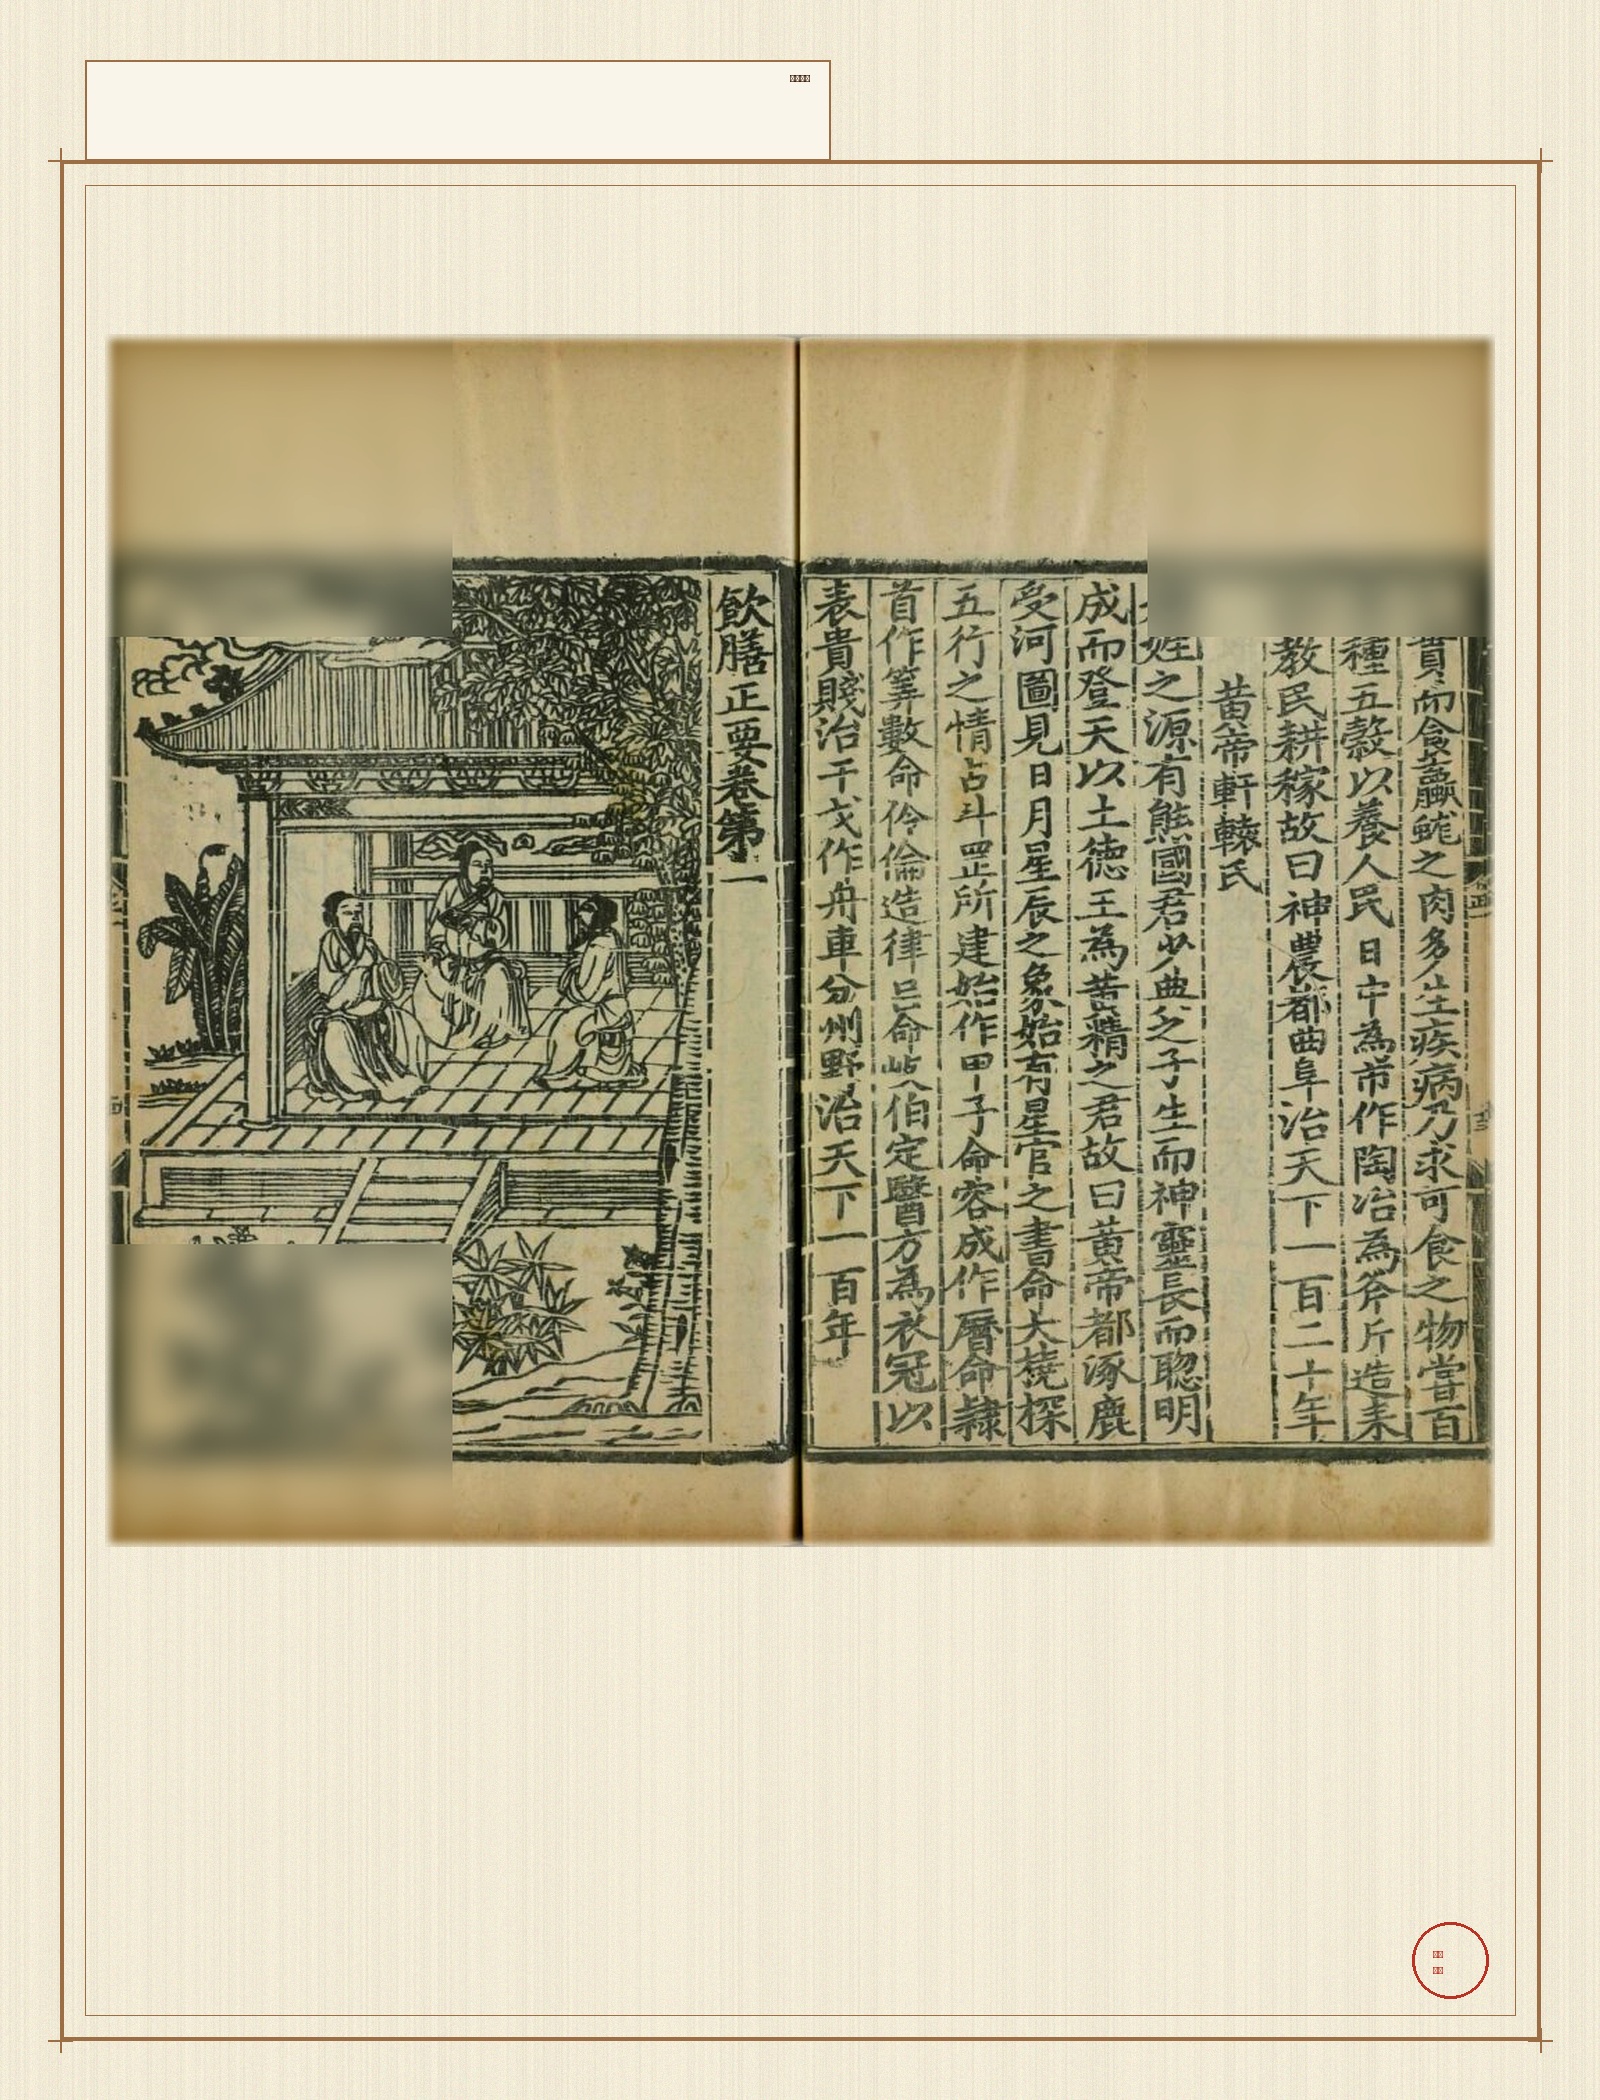 而食蠃蛖之肉多生疾病乃求可食之物嘗百
種五穀以養人民日中為市作陶冶為斧斤造耒
教民耕稼故曰神農都曲阜治天下一百二十年
黃帝軒轅氏
姓之源有熊國君少典之子生而神靈長而聰明
成而登天以土德王為黃精之君故曰黃帝都涿鹿
受河圖見日月星辰之象始有星官之書命大撓探
五行之情占斗罡所建始作甲子命容成作曆命隸
首作筭數命伶倫造律呂命岐伯定醫方為衣冠以
表貴賤治干戈作舟車分州野治天下一百年
飲膳正要卷第一